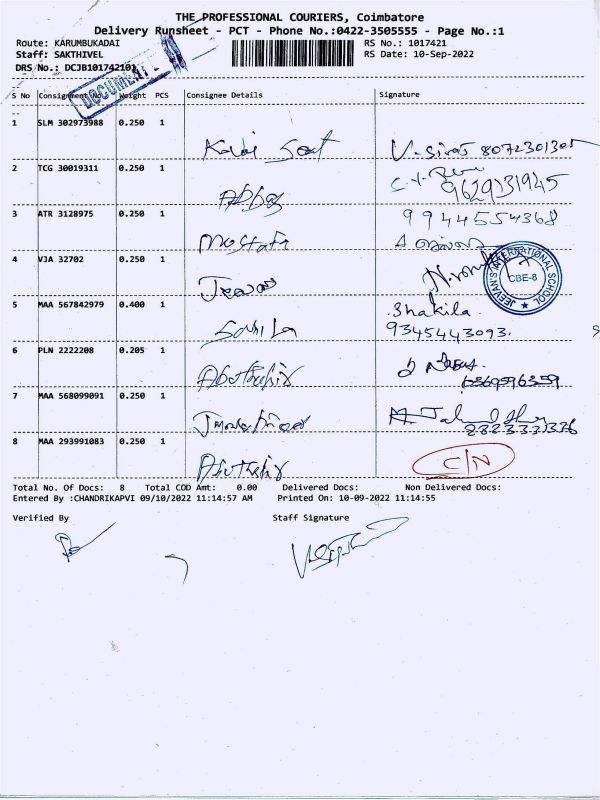 THE PROFESSIONAL COURIERS, Coimbatore
Delivery Runsheet - PCT - Phone No.:0422-3505555 - Page No.:1
Route: KARUMBUKADAI RS No.: 1017421
Staff: SAKTHIVEL RS Date: 10-Sep-2022
DRS No.: DCJB101742101
DOCUMENT
S No Consignment No. Weight PCS Consignee Details Signature
1 SLM 302973988 0.250 1
8072301301
2 TCG 30019311 0.250 1
9629131945
Abbas
3 ATR 3128975 0.250 1 9944554368
Mostafa
4 VJA 32702 0.250 1
JEEVAN'S INTERNATIONAL SCHOOL
CBE-8
5 MAA 567842979 0.400 1 Shakila
9345443093.
6 PLN 2222208 0.205 1
Abuthahir
7 MAA 568099091 0.250 1
8 MAA 293991083 0.250 1 C/N
Abuthahir
Total No. Of Docs: 8 Total COD Amt: 0.00 Delivered Docs: Non Delivered Docs:
Entered By :CHANDRIKAPVI 09/10/2022 11:14:57 AM Printed On: 10-09-2022 11:14:55
Verified By Staff Signature